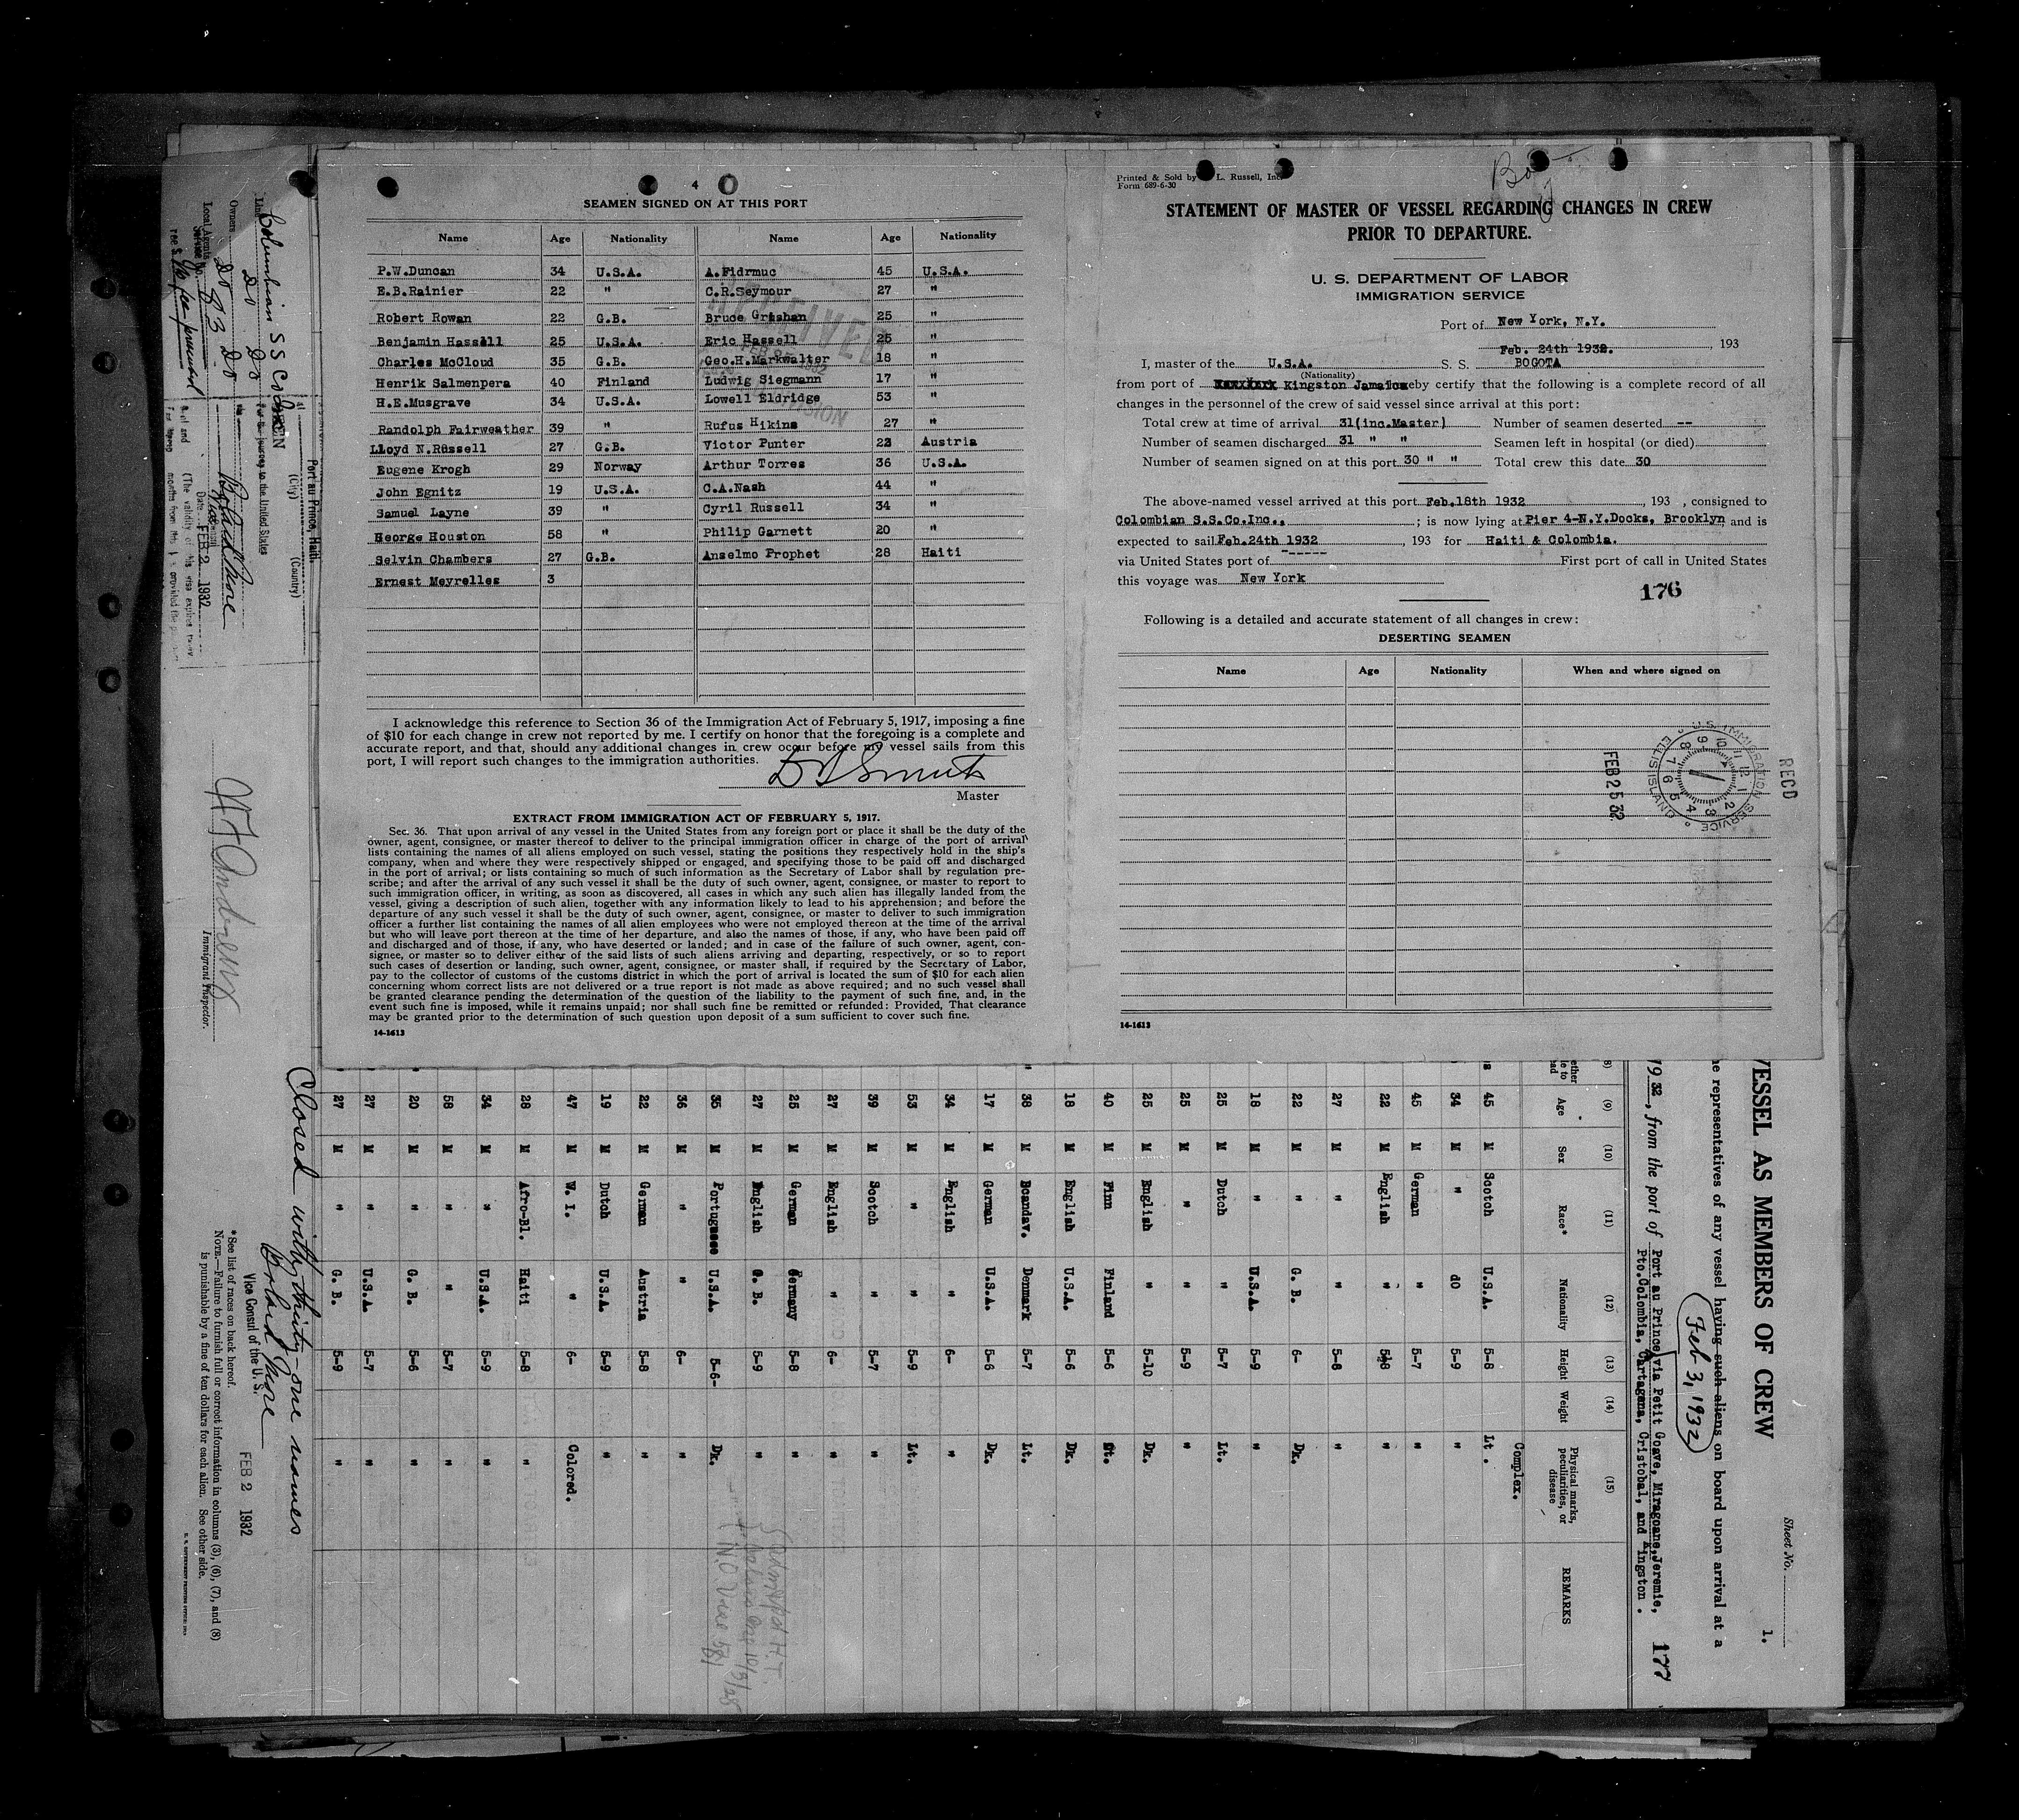 4
SEAMEN SIGNED ON AT THIS PORT
Name Age Nationality Name Age Nationality
P.W.Duncan 34 U.S.A. A.Fidrmuc 45 U.S.A.
E.B.Rainier 22 " C.R.Seymour 27 "
Robert Rowan 22 G.B. Bruce Grishan 25 "
Benjamin Hassell 25 U.S.A. Eric Hassell 25 "
Charles McCloud 35 G.B. Geo.H.Markwalter 18 "
Henrik Salmenpera 40 Finland Ludwig Siegmann 17 "
H.E.Musgrave 34 U.S.A. Lowell Eldridge 53 "
Randolph Fairweather 39 " Rufus Hikins 27 "
Lloyd N.Russell 27 G.B. Victor Punter 22 Austria
Eugene Krogh 29 Norway Arthur Torres 36 U.S.A.
John Egnitz 19 U.S.A. C.A.Nash 44 "
Samuel Layne 39 " Cyril Russell 34 "
George Houston 58 " Philip Garnett 20 "
Selvin Chambers 27 G.B. Anselmo Prophet 28 Haiti
Ernest Meyrelles 3
RECEIVED
FEB 25 1932
I acknowledge this reference to Section 36 of the Immigration Act of February 5, 1917, imposing a fine
of $10 for each change in crew not reported by me. I certify on honor that the foregoing is a complete and
accurate report, and that, should any additional changes in crew occur before my vessel sails from this
port, I will report such changes to the immigration authorities.
Master
EXTRACT FROM IMMIGRATION ACT OF FEBRUARY 5, 1917.
Sec. 36. That upon arrival of any vessel in the United States from any foreign port or place it shall be the duty of the
owner, agent, consignee, or master thereof to deliver to the principal immigration officer in charge of the port of arrival
lists containing the names of all aliens employed on such vessel, stating the positions they respectively hold in the ship's
company, when and where they were respectively shipped or engaged, and specifying those to be paid off and discharged
in the port of arrival; or lists containing so much of such information as the Secretary of Labor shall by regulation pre-
scribe; and after the arrival of any such vessel it shall be the duty of such owner, agent, consignee, or master to report to
such immigration officer, in writing, as soon as discovered, all cases in which any such alien has illegally landed from the
vessel, giving a description of such alien, together with any information likely to lead to his apprehension; and before the
departure of any such vessel it shall be the duty of such owner, agent, consignee, or master to deliver to such immigration
officer a further list containing the names of all alien employees who were not employed thereon at the time of the arrival
but who will leave port thereon at the time of her departure, and also the names of those, if any, who have been paid off
and discharged and of those, if any, who have deserted or landed; and in case of the failure of such owner, agent, con-
signee, or master so to deliver either of the said lists of such aliens arriving and departing, respectively, or so to report
such cases of desertion or landing, such owner, agent, consignee, or master shall, if required by the Secretary of Labor,
pay to the collector of customs of the customs district in which the port of arrival is located the sum of $10 for each alien
concerning whom correct lists are not delivered or a true report is not made as above required; and no such vessel shall
be granted clearance pending the determination of the question of the liability to the payment of such fine, and, in the
event such fine is imposed, while it remains unpaid; nor shall such fine be remitted or refunded: Provided, That clearance
may be granted prior to the determination of such question upon deposit of a sum sufficient to cover such fine.
14-1613
Printed & Sold by L. Russell, Inc.
Form 689-6-30
STATEMENT OF MASTER OF VESSEL REGARDING CHANGES IN CREW
PRIOR TO DEPARTURE.
U. S. DEPARTMENT OF LABOR
IMMIGRATION SERVICE
Port of New York, N.Y.
Feb. 24th 1932. , 193
I, master of the U.S.A. S. S. BOGOTA
(Nationality)
from port of Kingston Jamaica eby certify that the following is a complete record of all
changes in the personnel of the crew of said vessel since arrival at this port:
Total crew at time of arrival 31(inc.Master) Number of seamen deserted --
Number of seamen discharged 31 " " Seamen left in hospital (or died)
Number of seamen signed on at this port 30 " " Total crew this date 30
The above-named vessel arrived at this port Feb.18th 1932 , 193 , consigned to
Colombian S.S.Co.Inc., ; is now lying at Pier 4-N.Y.Docks, Brooklyn and is
expected to sail Feb.24th 1932 , 193 for Haiti & Colombia.
via United States port of ----- First port of call in United States
this voyage was New York
176
Following is a detailed and accurate statement of all changes in crew:
DESERTING SEAMEN
Name Age Nationality When and where signed on
U.S. IMMIGRATION SERVICE
ELLIS ISLAND
RECD
FEB 25 32
14-1613
Sheet No. 1.
VESSEL AS MEMBERS OF CREW
he representatives of any vessel having such aliens on board upon arrival at a
Feb 3, 1932
1932, from the port of Port au Prince via Petit Goave, Miragoane, Jeremie,
Pto.Colombia, Cartagena, Cristobal, and Kingston.
177
(9) (10) (11) (12) (13) (14) (15)
Age Sex Race* Nationality Height Weight Physical marks, peculiarities, or disease REMARKS
Complex.
45 M Scotch U.S.A. 5-8 Lt.
34 M " do 5-9 "
45 M German " 5-7 "
22 M English " 5-8 "
27 M " " 5-8 "
22 M " G. B. 6- Dk.
18 M " U.S.A. 5-9 "
25 M Dutch " 5-7 Lt.
25 M " " 5-9 "
25 M English " 5-10 Dk.
40 M Finn Finland 5-6
18 M English U.S.A. 5-6 Dk.
38 M Scandav. Denmark 5-7 Lt.
17 M German U.S.A. 5-6 Dk.
34 M English " 6- "
53 M " " 5-9 Lt.
39 M Scotch " 5-7 "
27 M English " 6- "
25 M German Germany 5-8 "
27 M English G. B. 5-9 "
35 M Portuguese U.S.A. 5-6- Dk.
36 M " " 6- "
22 M German Austria 5-8 "
19 M Dutch U.S.A. 5-9 "
47 M W. I. " 6- Colored.
28 M Afro-Bl. Haiti 5-8 "
34 M " U.S.A. 5-9 "
58 M " " 5-7 "
20 M " G. B. 5-6 "
27 M " U.S.A. 5-7 "
27 M " G. B. 5-9 "
Closed with thirty-one names
Vice Consul of the U. S.
FEB 2 1932
*See list of races on back hereof.
NOTE.—Failure to furnish full or correct information in columns (3), (6), (7), and (8)
is punishable by a fine of ten dollars for each alien. See other side.
Immigrant Inspector.
Port au Prince, Haiti.
(City) (Country)
Line Columbian S S Co
Owners Do Do
Local Agents Do Do
Date FEB 2 1932